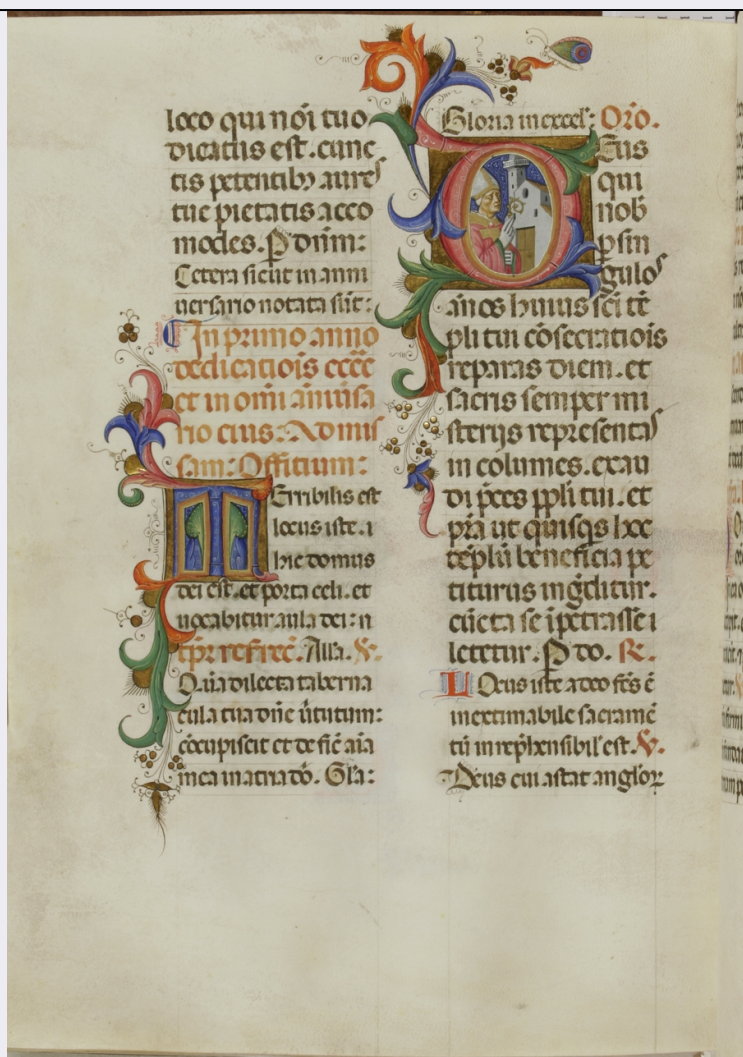 loco qui noī tuo
dicatus est. cunc
tis petentibꝫ aures
tue pietatis acco
modes. P dnm̄:
Cetera sicut in anni
uersario notata sūt:
In primo anno
dedicatiōis eccē
et in om̄i āniūsa
rio eius: Ad mis
sam: Offitium:
Terribilis est
locus iste. i
hic domus
dei est. et porta celi. et
uocabitur aula dei: n
tp̄r refrec̄. Alła. V.
Q uā dilecta taberna
cula tua dn̄e ūtutum:
cōcupiscit et defic̄ aīa
mea in atria dō. Gła:
Gloria in excel: Oro̅.
Deus
qui
nob̄
p sin
gulos
annos huius sc̄i tē
pli tui cōsecratiōis
reparas diem. et
sacris semper mi
sterijs representas
in columes. exau
di p̄ces ppl̄i tui. et
p̄ta ut quisq̄s hoc
tēplū beneficia pe
titurus in ḡditur.
cūcta se īpetrasse l
letetur. P do. R.
L Ocus iste a deo fc̄s ē
inextimabile sacramē
tū inrep̄hensibil' est. V.
Deus cui astat angl̄oꝝ